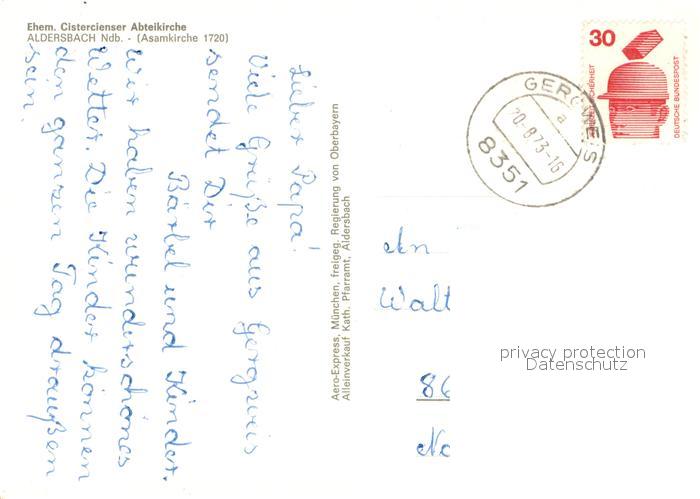 Ehem. Cistercienser Abteikirche
ALDERSBACH Ndb. - (Asamkirche 1720)
Lieber Papa!
Viele Grüße aus Gergweis
sendet Dir
Bärbel und Kinder.
Wir haben wunderschönes
Wetter. Die Kinder können
den ganzen Tag draußen
sein.
Aero-Express, München, freigeg. Regierung von Oberbayern
Alleinverkauf Kath. Pfarramt, Aldersbach
30
DEUTSCHE BUNDESPOST
GERGWEIS
a
20.-8.73-16
8351
An
Walt
86
privacy protection
Datenschutz